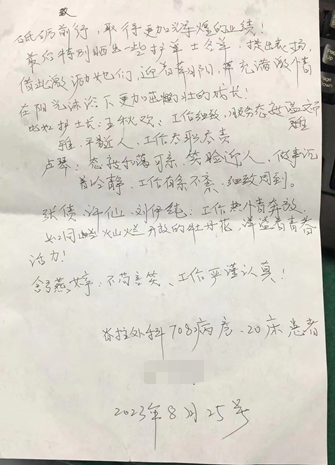 砥砺前行，取得更加辉煌的业绩！
最后特别晒出一些护士名单，提出表扬，
借此激励她们，迎着朝阳，再充满激情
在阳光沐浴下更加茁壮的成长！
护士长王秋欢：工作细致，服务态度温文而
雅，平易近人，工作尽职尽责
卢琴：态度和蔼可亲，笑脸近人，做事沉
着冷静，工作有条不紊，细致周到。
张倩、许仙、刘伊纯：工作热情奔放，
如同灿烂开放的牡丹花，洋溢着青春
活力！
舒燕婷：不苟言笑、工作严谨认真！
脊柱外科708病房、20床患者
2023年8月25号